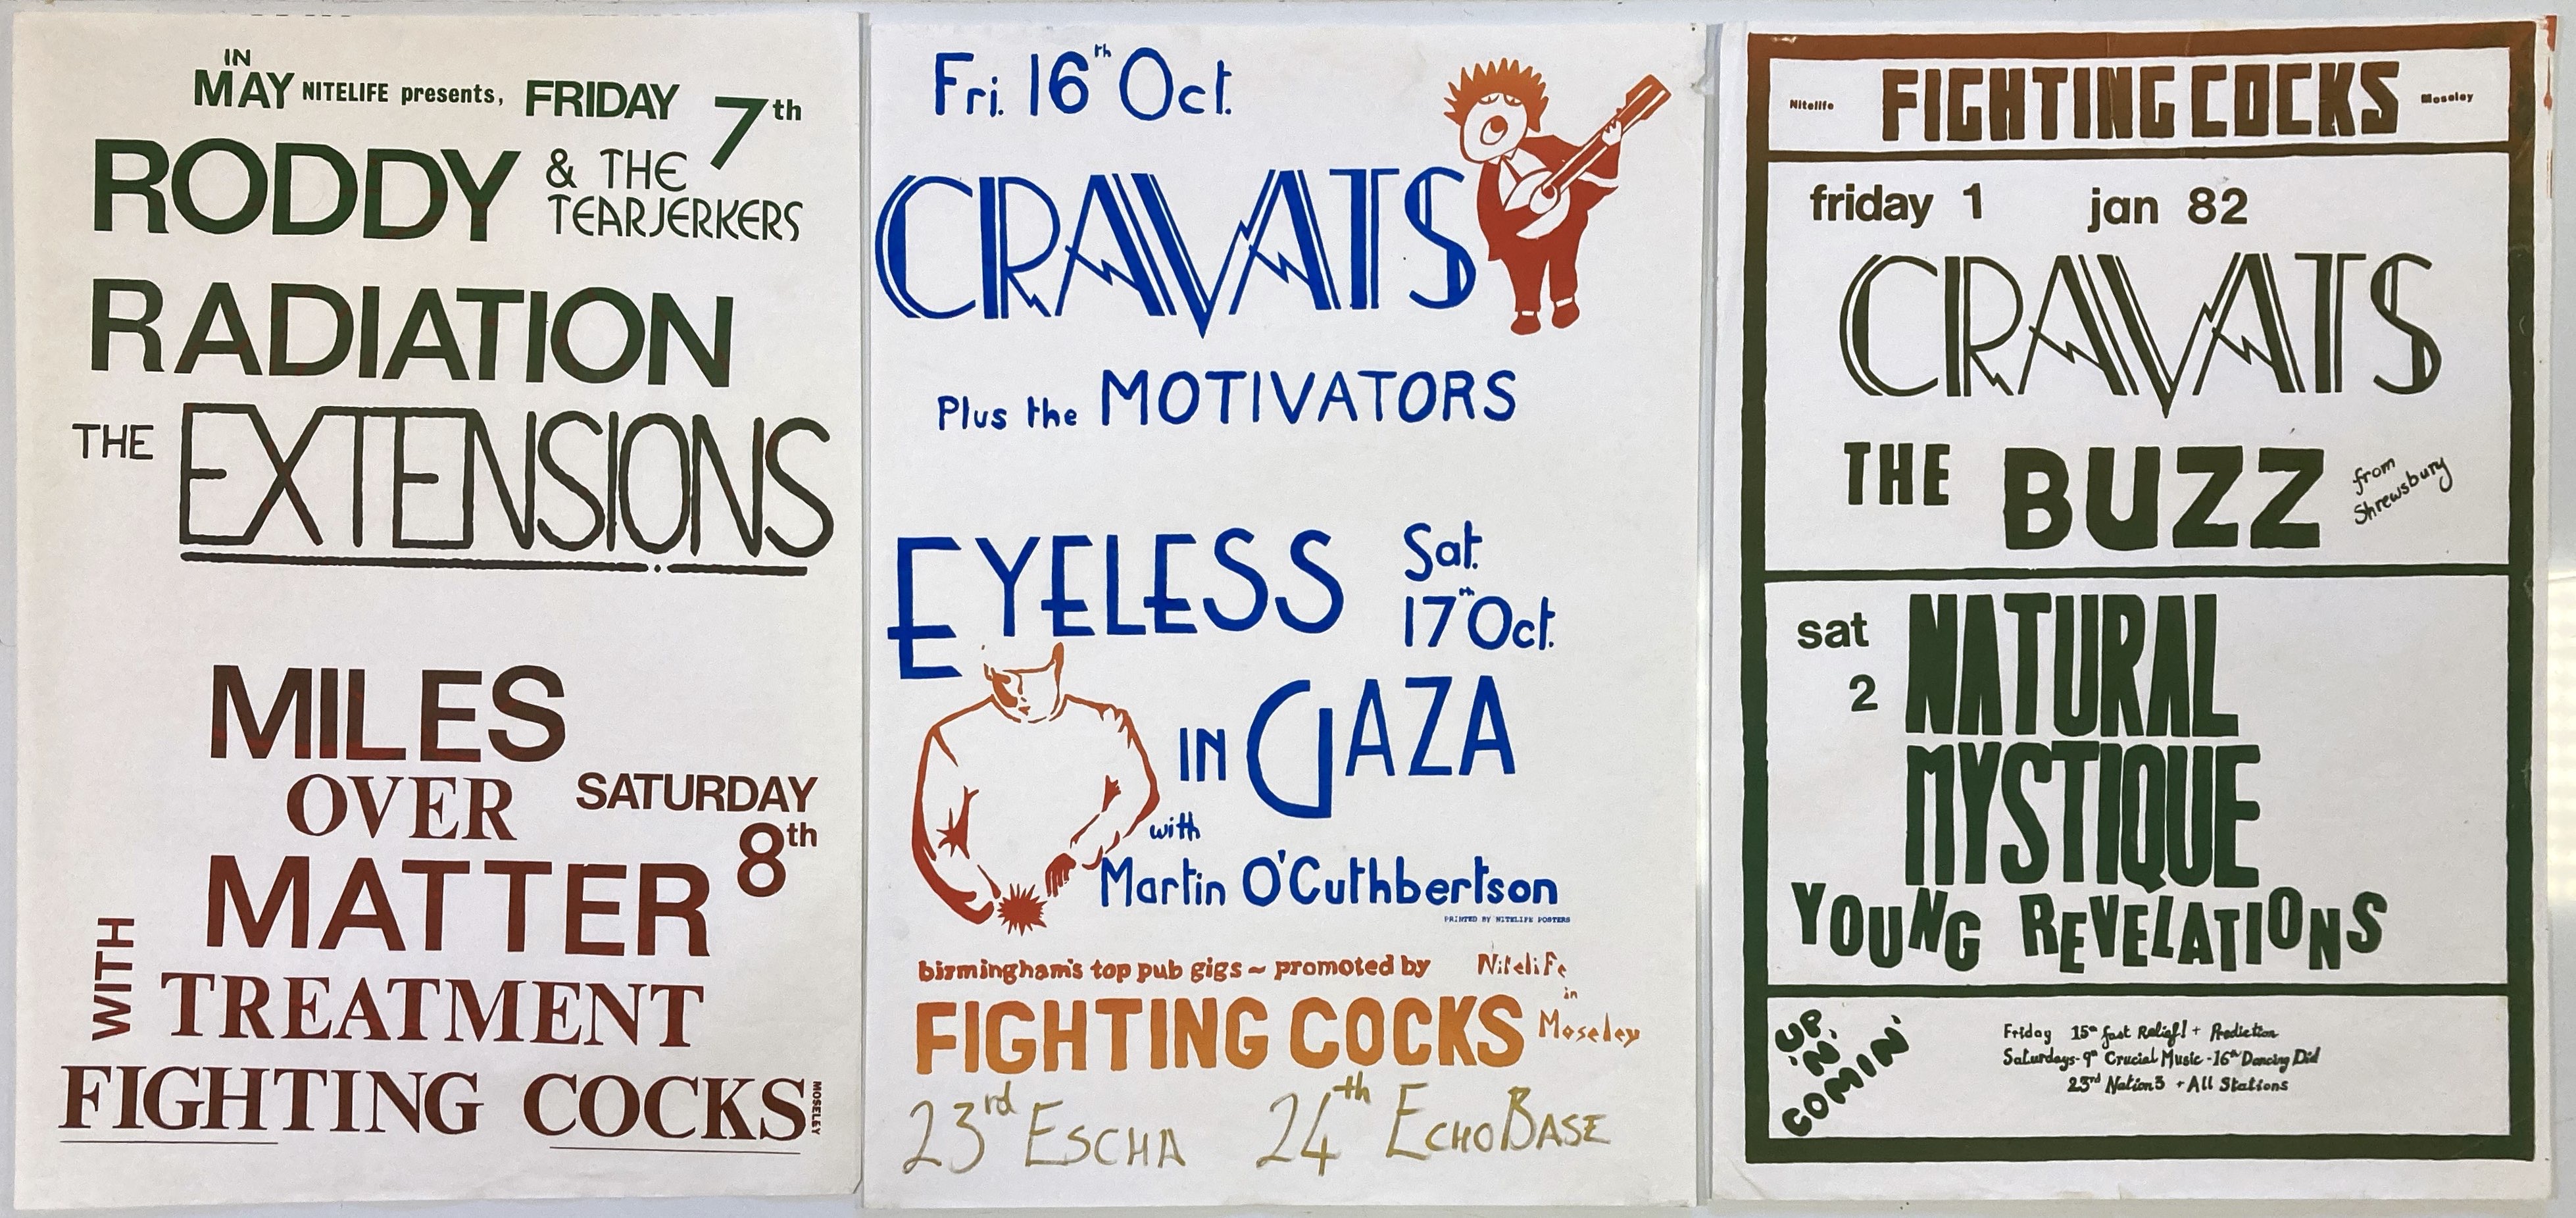 IN
MAY NITELIFE presents, FRIDAY 7th
RODDY & THE
TEARJERKERS
RADIATION
THE EXTENSIONS
MILES
OVER SATURDAY
MATTER 8th
WITH
TREATMENT
FIGHTING COCKS MOSELEY
Fri. 16th Oct.
CRAVATS
Plus the MOTIVATORS
EYELESS Sat.
17th Oct.
IN GAZA
with
Martin O'Cuthbertson
PRINTED BY NITELIFE POSTERS
birmingham's top pub gigs ~ promoted by Nitelife
in
FIGHTING COCKS Moseley
23rd ESCHA 24th ECHOBASE
Nitelife FIGHTING COCKS Moseley
friday 1 jan 82
CRAVATS
THE BUZZ from
Shrewsbury
sat NATURAL
2 MYSTIQUE
YOUNG REVELATIONS
UP
'N'
COMIN'
Friday 15th fast Relief! + Prediction
Saturdays - 9th Crucial Music - 16th Dancing Did
23rd Nation 3 + All Stations